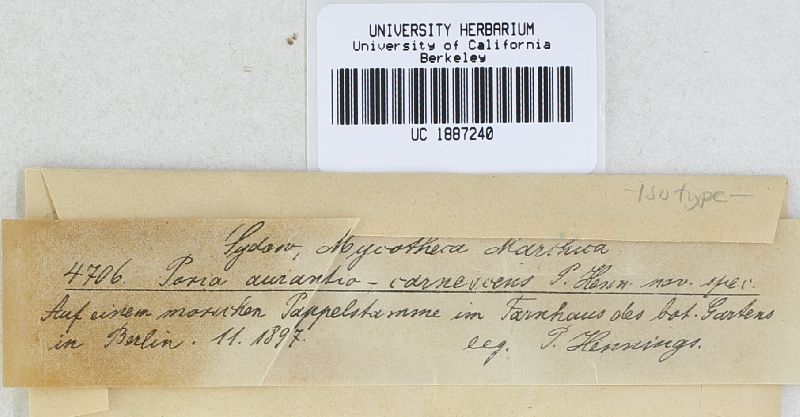 UNIVERSITY HERBARIUM
University of California
Berkeley
UC 1887240
-isotype-
Sydow, Mycotheca Marchica.
4706. Poria aurantio-carnescens P. Henn. nov. spec.
Auf einem morschen Pappelstamme im Farnhaus des bot. Gartens
in Berlin. 11. 1897. leg. P. Hennings.